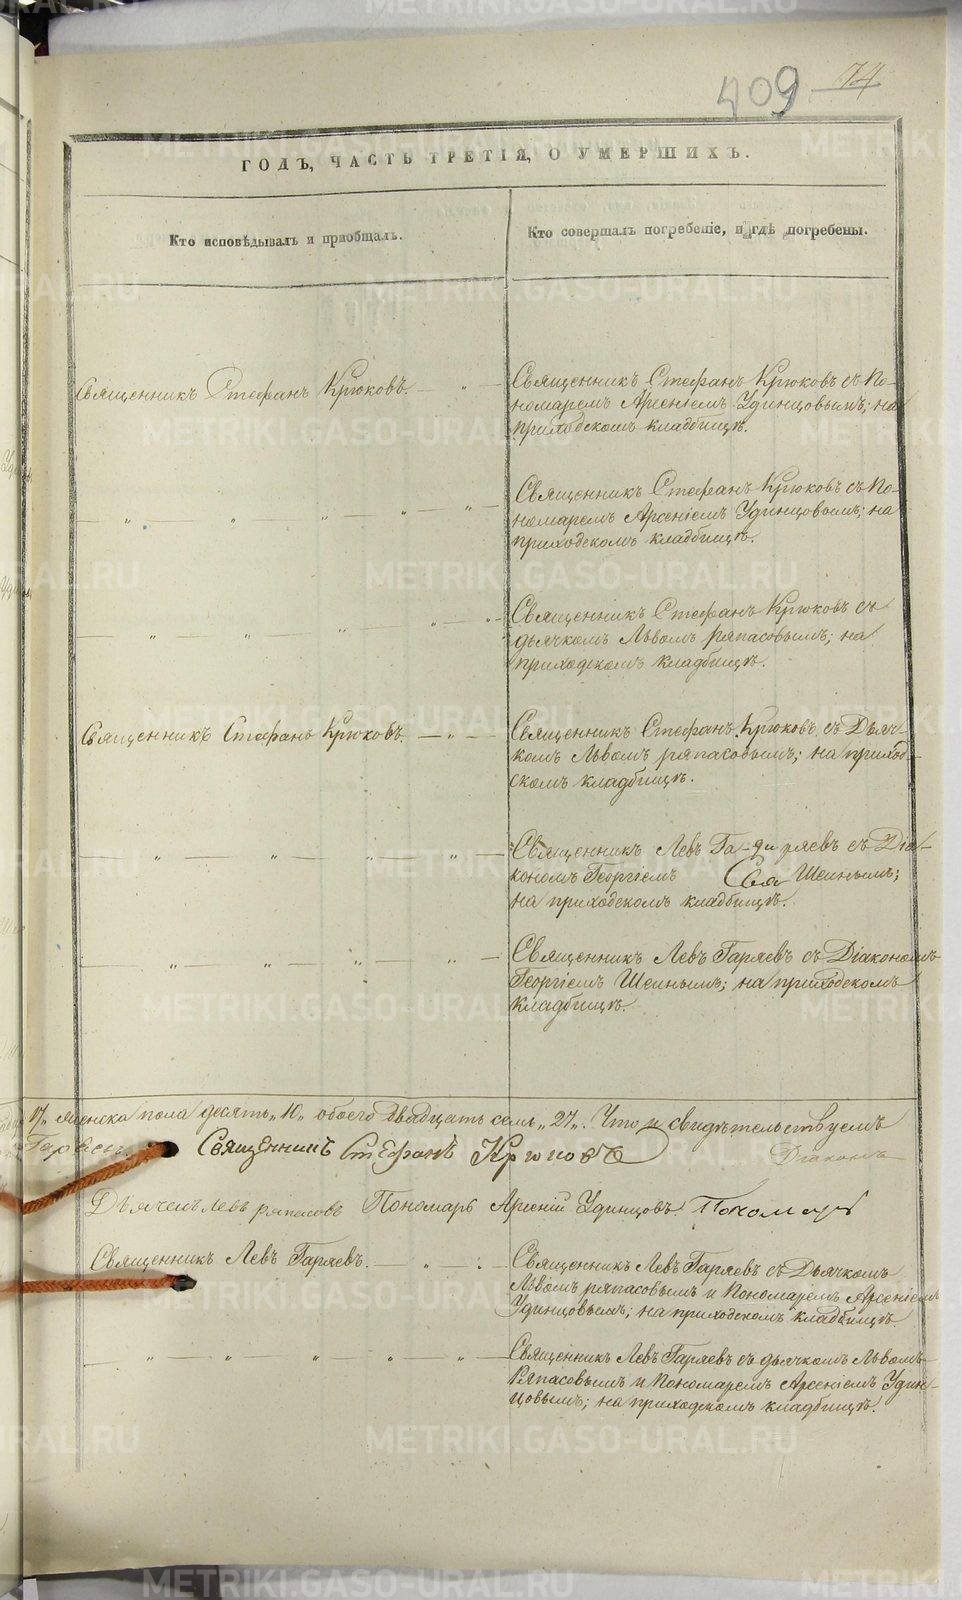 409 74
ГОДЪ, ЧАСТЬ ТРЕТІЯ, О УМЕРШИХЪ.
Кто исповѣдывалъ и пріобщалъ.
Кто совершалъ погребеніе, и гдѣ погребены.
Священникъ Стефанъ Крюковъ. — " —
Священникъ Стефанъ Крюковъ съ По-
номаремъ Арсеніемъ Удинцовымъ; на
приходскомъ кладбищѣ.
— " " — " — " " —
Священникъ Стефанъ Крюковъ съ По-
номаремъ Арсеніемъ Удинцовымъ; на
приходскомъ кладбищѣ.
— " — " — " — " — " —
Священникъ Стефанъ Крюковъ съ
дьячкомъ Львомъ ряпасовымъ; на
приходскомъ кладбищѣ.
Священникъ Стефанъ Крюковъ. — " —
Священникъ Стефанъ Крюковъ съ Дьяч-
комъ Львомъ ряпасовымъ; на приход-
скомъ кладбищѣ.
— " — " — " — " —
Священникъ Левъ съ Діа-
кономъ Георгіемъ Шеинымъ;
на приходскомъ кладбищѣ.
— " — " — " — " —
Священникъ Левъ Гаряевъ съ Діакономъ
Георгіемъ Шеинымъ; на приходскомъ
кладбищѣ.
17, женска пола десять „10„ обоего двадцать семь „27„. Что и свидѣтельствуемъ
Священникъ Стефанъ Крюковъ Діаконъ
Дьячекъ Левъ ряпасовъ Пономарь Арсеній Удинцовъ. Пономарь
Священникъ Левъ Гаряевъ. — " —
Священникъ Левъ Гаряевъ съ Дьячкомъ
Львомъ ряпасовымъ и Пономаремъ Арсеніемъ
Удинцовымъ; на приходскомъ кладбищѣ.
— " — " — " — " — " —
Священникъ Левъ Гаряевъ съ дьячкомъ Львомъ
Ряпасовымъ и Пономаремъ Арсеніемъ Удин-
цовымъ; на приходскомъ кладбищѣ.
METRIKI.GASO-URAL.RU